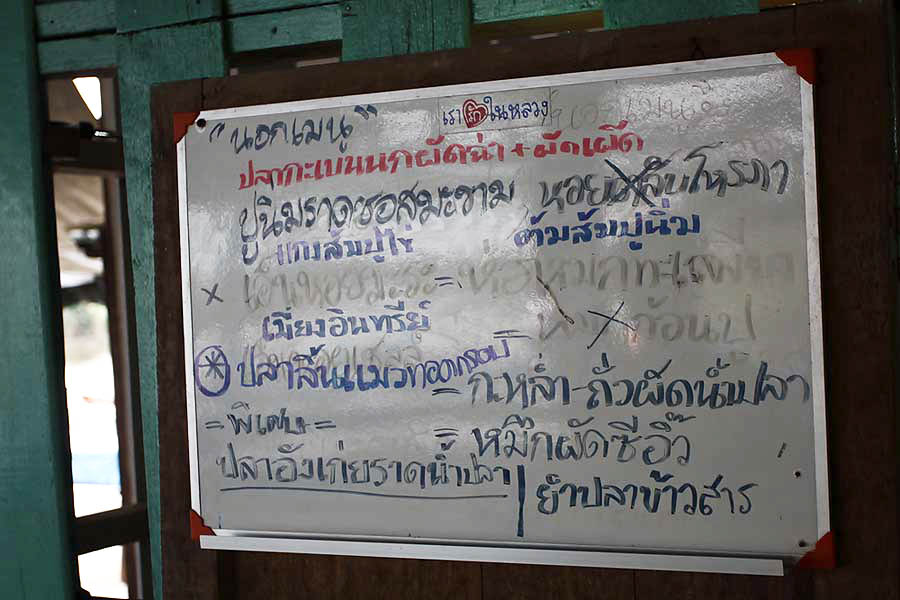 "นอกเมนู"
เรารักในหลวง
ปลากะเบนนกผัดฉ่า + ผัดเผ็ด
ปูนิ่มราดซอสมะขาม หอย
แกงส้มปูไข่ ต้มส้มปูนิ่ม
เมี่ยงอินทรีย์
ปลาลิ้นแมวทอดกรอบ
= กะหล่ำ-ถั่วผัดน้ำปลา
= พิเศษ =
= หมึกผัดซีอิ๊ว
ปลาอังเกยราดน้ำปลา
ยำปลาข้าวสาร